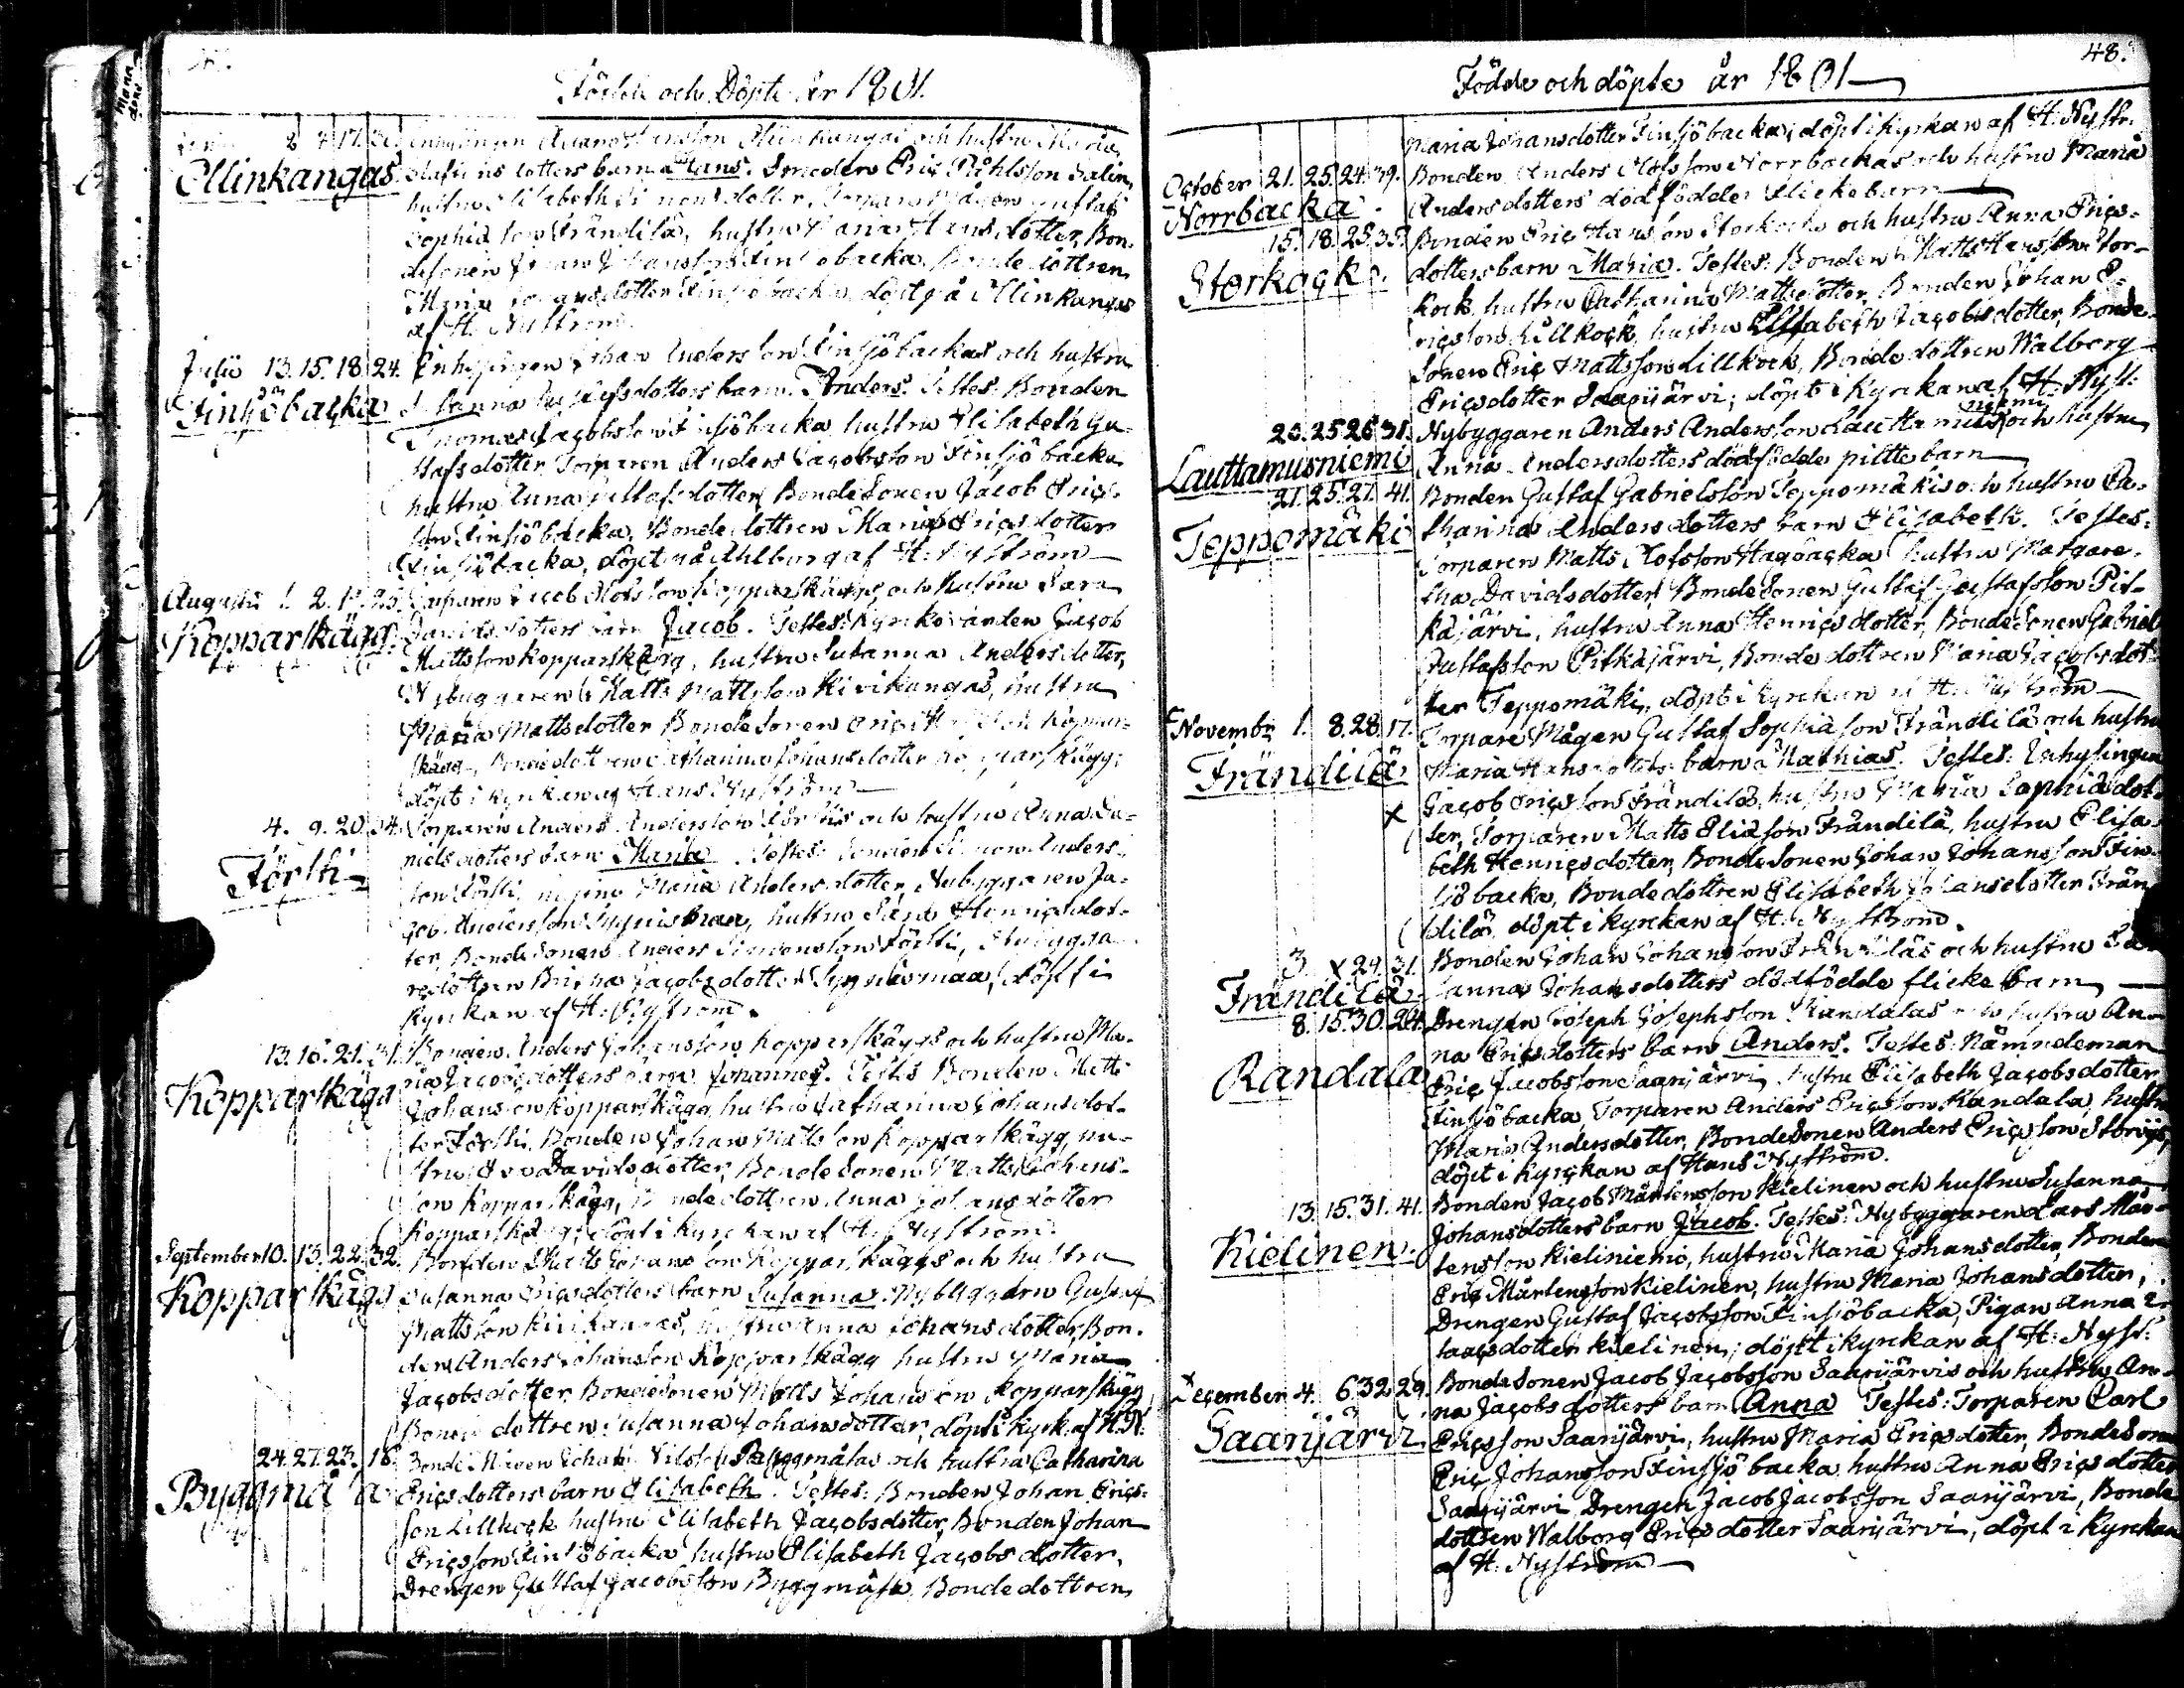 Födde och Döpte År 1801.
Ellinkangas
dotters barn Hans. Smeden Eric Påhlsson Salin,
hustru Elisabeth Simonsdotter, Gustaf
Sophiason Frändilä, hustru Maria Hansdotter, Bon-
desonen Johan Johansson Finsjöbacka, Bondedottren
Maria Johansdotter Finsjöbacka, döpt på Ellinkangas
af H. Nyström.
Julii 13. 15. 18. 24. Inhysingen Johan Andersson Finsjöbackas och hustru
Finsjöbacka
Susanna dotters barn Anders. Testes: Bonden
Thomas Jacobsson Finsjöbacka, hustru Elisabeth Gu-
stafsdotter, Torparen Anders Jacobsson Finsjöbacka
hustru Anna Gustafsdotter, Bondesonen Jacob Erics-
son Finsjöbacka, Bondedottren Maria Ericsdotter
Finsjöbacka, döpt på Ahlburg af H. Nyström
Augusti 1. 2. 19. 25. Torparen Jacob Olofsson Kopparskäggs och hustru Sara
Kopparskägg.
Davidsdotters barn Jacob. Testes: Kyrkovärden Jacob
Mattsson Kopparskägg, hustru Susanna Andersdotter,
Nybyggaren Matts Mattsson Kivikangas, hustru
Maria Mattsdotter, Bondesonen Eric Koppar-
skägg, Bondedottren Catharina Johansdotter Kopparskägg;
döpt i kyrkan af Hans Nyström
4. 9. 20. 34. Torparen Anders Andersson Förstis och hustru Anna Da-
Försti
nielsdotters barn Maria. Testes: Bonden Simon Anders-
son Försti, hustru Maria Andersdotter, Nybyggaren Ja-
cob Andersson Sygnismaa, hustru Sara Henricsdot-
ter, Bondesonen Anders Simonsson Försti, Nybygga-
redottren Brita Jacobsdotter Sygnismaa, döpt i
kyrkan af H. Nyström.
13. 16. 21. 31. Bonden Anders Johansson Kopparskäggs och hustru Ma-
Kopparskägg
ria Jacobsdotters barn Johannes. Testes Bonden Matts
Johansson Kopparskägg, hustru Catharina Johansdot-
ter Försti, Bonden Johan Mattsson Kopparskägg, hu-
stru Davidsdotter, Bondesonen Matts Johans-
son Kopparskägg, Bondedottren Anna Johansdotter
Kopparskägg, döpt i kyrkan af H. Nyström.
September 10. 13. 22. 32. Bonden Matts Johansson Kopparskäggs och hustru
Kopparskägg
Susanna Ericsdotters barn Susanna. Nybyggarn Gustaf
Mattsson Kivikangas, hustru Anna Johansdotter, Bon-
den Anders Johansson Kopparskägg hustru Maria
Jacobsdotter, Bondesonen Matts Johansson Kopparskägg
Bondedottren Susanna Johansdotter, döpt i kyrk. af H. N.
24. 27. 23. 18. Bonde Mågen Johan Nilsson Byggmästas och hustru Catharina
Byggmästa
Ericsdotters barn Elisabeth. Testes: Bonden Johan Erics-
son Lillkock hustru Elisabeth Jacobsdotter, Bonden Johan
Ericsson Finsjöbacka hustru Elisabeth Jacobsdotter,
Drengen Gustaf Jacobsson Byggmästa Bondedottren
48.
Födde och döpte år 1801
Maria Johansdotter Finsjöbacka, döpt i kyrkan af H. Nystr.
October 21. 25. 24. 39. Bonden Anders Olofsson Norrbackas och hustru Maria
Norrbacka.
Andersdotters dödfödde flickebarn
15. 18. 25. 35. Bonden Eric Hansson Storkocks och hustru Anna Erics-
Storkock
dotters barn Maria. Testes: Bonden Matts Hansson Stor-
kock, hustru Catharina Mattsdotter, Bonden Johan E-
ricsson Lillkock, hustru Elisabeth Jacobsdotter, Bonde-
sonen Eric Mattsson Lillkock, Bondedottren Walborg
Ericsdotter Saarijärvi; döpt i kyrkan af H. Nyst.
20. 25. 26. 31. Nybyggaren Anders Andersson Lauttamusniemis och hustru
Lauttamusniemi
Anna Andersdotters dödfödde piltebarn
21. 25. 27. 41. Bonden Gustaf Gabrielsson Teppomäkis och hustru Ca-
Teppomäki
tharina Andersdotters barn Elisabeth. Testes:
Torparen Matts Olofsson Hagbacka hustru Margare-
tha Davidsdotter, Bondesonen Gustaf Gustafsson Pit-
käjärvi, hustru Anna Henricsdotter, Bondesonen Gabriel
Gustafsson Pitkäjärvi, Bondedottren Maria Jacobsdot-
ter Teppomäki, döpt i kyrkan af H. Nyström
Novembr. 1. 8. 28. 17. Torpare Mågen Gustaf Sophiason Frändilä och hustru
Frändilä
Maria Hansdotters barn Mathias. Testes: Inhysingen
x Jacob Ericsson Frändilä, hustru Maria Sophiadot-
ter, Torparen Matts Eliasson Frändilä, hustru Elisa-
beth Henricsdotter, Bondesonen Johan Johansson Fin-
sjöbacka, Bondedottren Elisabeth Johansdotter Frän-
dilä, döpt i kyrkan af H. Nyström.
3. x 29. 31. Bonden Johan Johansson Frändiläs och hustru Su-
Frändilä
sanna Johansdotters dödfödde flickebarn
8. 15. 30. 24. Drengen Joseph Josephsson Randalas och hustru An-
Randala
na Ericsdotters barn Anders. Testes: Nämndeman
Eric Jacobsson Saarijärvi, hustru Elisabeth Jacobsdotter
Finsjöbacka, Torparen Anders Ericsson Randala, hustru
Maria Andersdotter, Bondesonen Anders Ericsson
döpt i kyrckan af Hans Nyström.
13. 15. 31. 41. Bonden Jacob Mårtensson Kielinen och hustru Susanna
Kielinen.
Johansdotters barn Jacob. Testes: Nybyggaren Lars Mår-
tensson Kieliniemi, hustru Maria Johansdotter, Bonden
Eric Mårtensson Kielinen, hustru Maria Johansdotter,
Drengen Gustaf Jacobsson Finsjöbacka, Pigan Anna I-
saacsdotter Kielinen, döpt i kyrckan af H. Nyst.
December 4. 6. 32. 29. Bondesonen Jacob Jacobsson Saarijärvis och hustru An-
Saarijärvi
na Jacobsdotters barn Anna Testes: Torparen Carl
Ericsson Saarijärvi, hustru Maria Ericsdotter, Bondesonen
Eric Johansson Finsjöbacka hustru Anna Ericsdotter
Saarijärvi Drengen Jacob Jacobsson Saarijärvi, Bonde
dottren Walborg Ericsdotter Saarijärvi, döpt i kyrckan
af H. Nyström